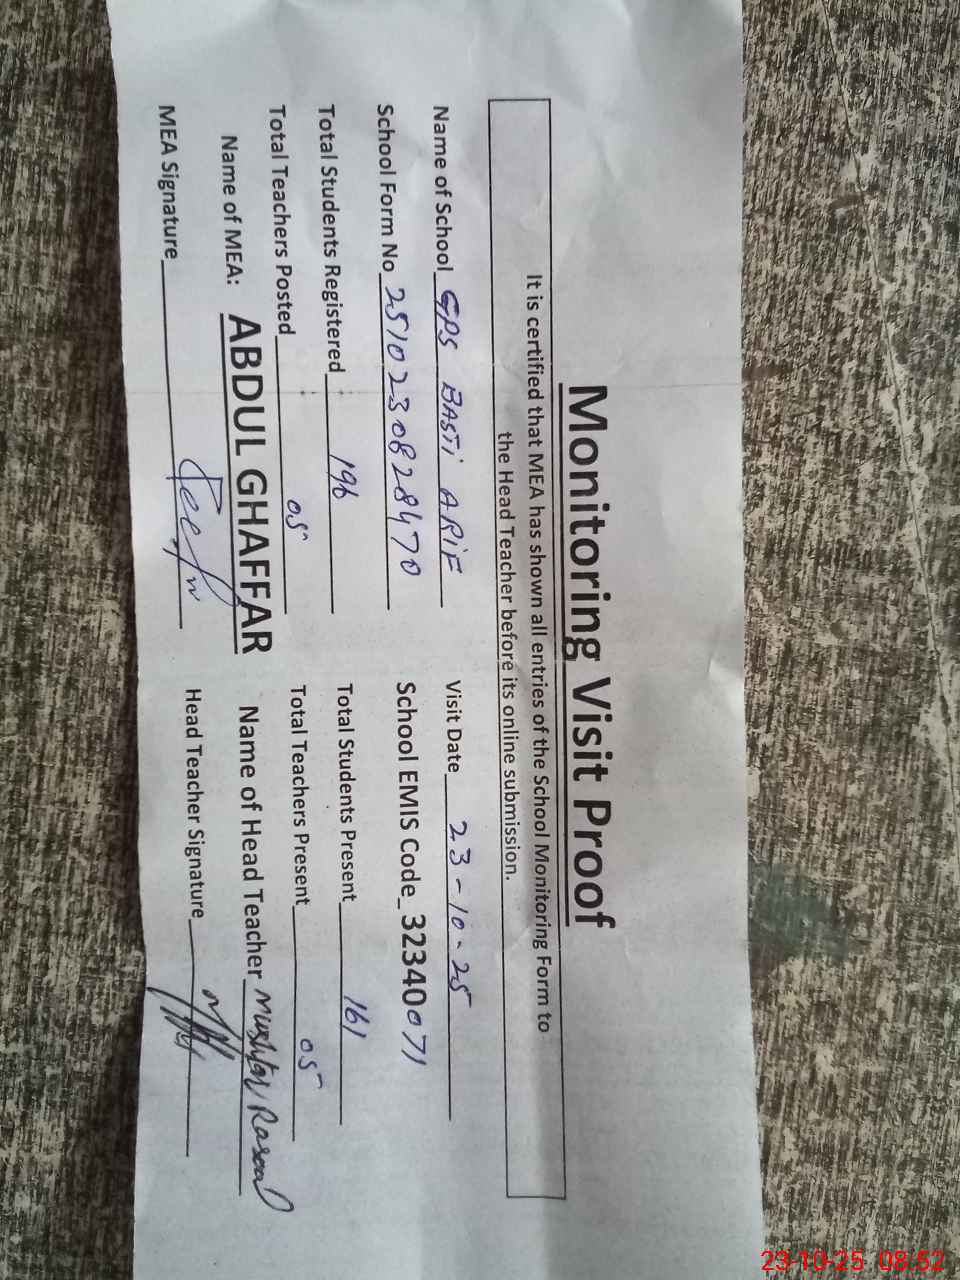 Monitoring Visit Proof
It is certified that MEA has shown all entries of the School Monitoring Form to
the Head Teacher before its online submission.
Name of School GPS BASTI ARIF Visit Date 23-10-25
School Form No 2510230828470 School EMIS Code_32340071
Total Students Registered 196 Total Students Present 161
Total Teachers Posted 05 Total Teachers Present 05
Name of MEA: ABDUL GHAFFAR Name of Head Teacher Mushtaq Rasool
MEA Signature Head Teacher Signature
23-10-25 08:52